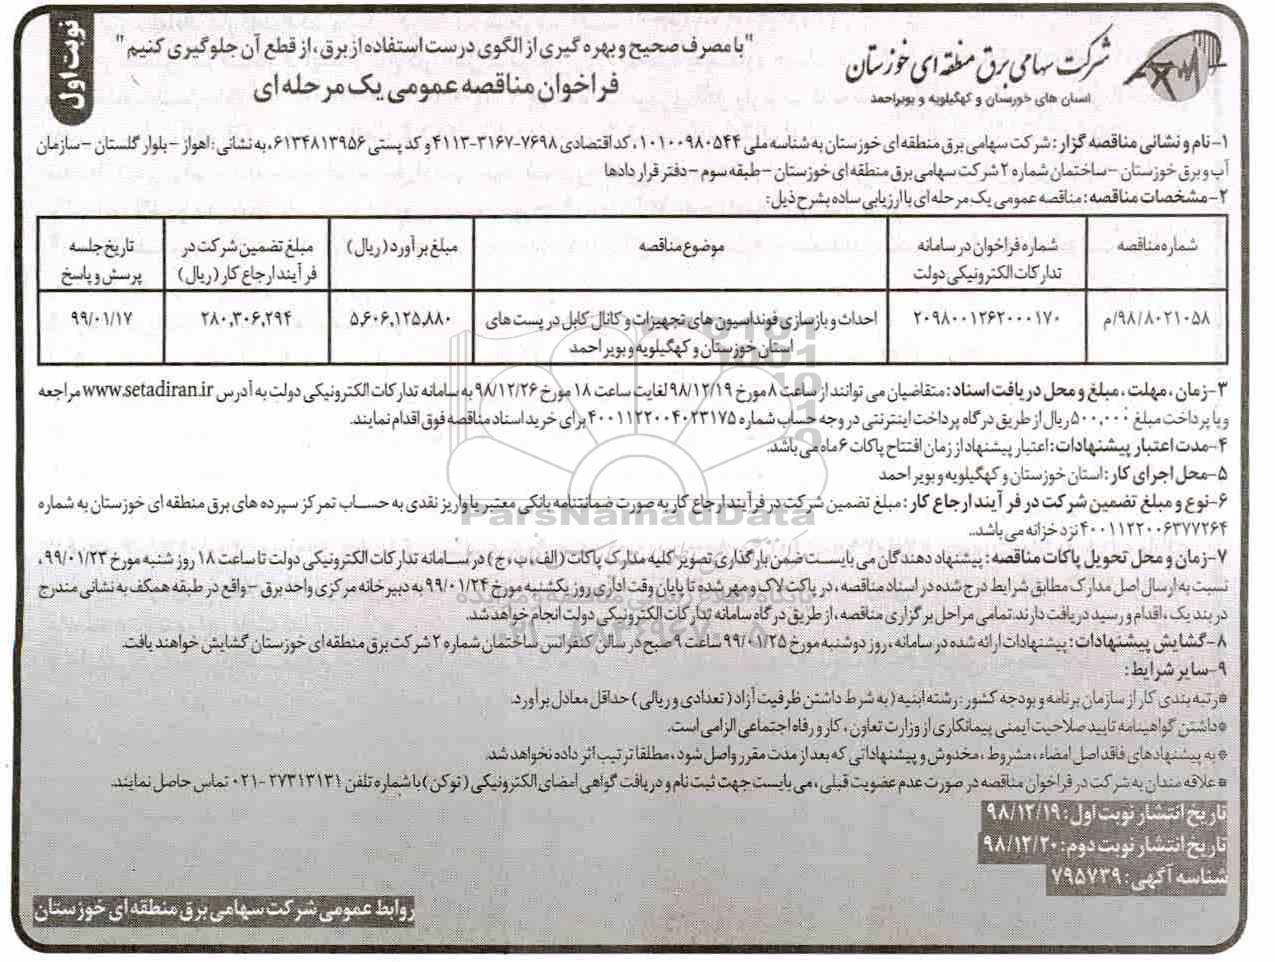 شرکت سهامی برق منطقه ای خوزستان
استان های خوزستان و کهگیلویه و بویراحمد
"با مصرف صحیح و بهره گیری از الگوی درست استفاده از برق، از قطع آن جلوگیری کنیم"
فراخوان مناقصه عمومی یک مرحله ای
نوبت اول
۱- نام و نشانی مناقصه گزار: شرکت سهامی برق منطقه ای خوزستان به شناسه ملی ۱۰۱۰۰۹۸۰۵۴۴، کد اقتصادی ۷۶۹۸-۳۱۶۷-۴۱۱۳ و کد پستی ۶۱۳۴۸۱۳۹۵۶، به نشانی: اهواز - بلوار گلستان - سازمان
آب و برق خوزستان - ساختمان شماره ۲ شرکت سهامی برق منطقه ای خوزستان - طبقه سوم - دفتر قراردادها
۲- مشخصات مناقصه: مناقصه عمومی یک مرحله ای با ارزیابی ساده بشرح ذیل:
شماره مناقصه
شماره فراخوان در سامانه تدارکات الکترونیکی دولت
موضوع مناقصه
مبلغ برآورد (ریال)
مبلغ تضمین شرکت در فرآیند ارجاع کار (ریال)
تاریخ جلسه پرسش و پاسخ
۹۸/۸۰۲۱۰۵۸/م
۲۰۹۸۰۰۱۲۶۲۰۰۰۱۷۰
احداث و بازسازی فونداسیون های تجهیزات و کانال کابل در پست های
استان خوزستان و کهگیلویه و بویر احمد
۵,۶۰۶,۱۲۵,۸۸۰
۲۸۰,۳۰۶,۲۹۴
۹۹/۰۱/۱۷
۳- زمان، مهلت، مبلغ و محل دریافت اسناد: متقاضیان می توانند از ساعت ۸ مورخ ۹۸/۱۲/۱۹ لغایت ساعت ۱۸ مورخ ۹۸/۱۲/۲۶ به سامانه تدارکات الکترونیکی دولت به آدرس www.setadiran.ir مراجعه
و با پرداخت مبلغ ۵۰۰,۰۰۰ ریال از طریق درگاه پرداخت اینترنتی در وجه حساب شماره ۴۰۰۱۱۲۲۰۰۴۰۲۳۱۷۵ برای خرید اسناد مناقصه فوق اقدام نمایند.
۴- مدت اعتبار پیشنهادات: اعتبار پیشنهاد از زمان افتتاح پاکات ۶ ماه می باشد.
۵- محل اجرای کار: استان خوزستان و کهگیلویه و بویر احمد
۶- نوع و مبلغ تضمین شرکت در فرآیند ارجاع کار: مبلغ تضمین شرکت در فرآیند ارجاع کار به صورت ضمانتنامه بانکی معتبر یا واریز نقدی به حساب تمرکز سپرده های برق منطقه ای خوزستان به شماره
۴۰۰۱۱۲۲۰۰۶۳۷۷۲۶۴ نزد خزانه می باشد..
۷- زمان و محل تحویل پاکات مناقصه: پیشنهاد دهندگان می بایست ضمن بارگذاری تصویر کلیه مدارک پاکات (الف، ب، ج) در سامانه تدارکات الکترونیکی دولت تا ساعت ۱۸ روز شنبه مورخ ۹۹/۰۱/۲۳،
نسبت به ارسال اصل مدارک مطابق شرایط درج شده در اسناد مناقصه، در پاکت لاک و مهر شده تا پایان وقت اداری روز یکشنبه مورخ ۹۹/۰۱/۲۴ به دبیرخانه مرکزی واحد برق - واقع در طبقه همکف به نشانی مندرج
در بند یک، اقدام و رسید دریافت دارند. تمامی مراحل برگزاری مناقصه، از طریق درگاه سامانه تدارکات الکترونیکی دولت انجام خواهد شد.
۸- گشایش پیشنهادات: پیشنهادات ارائه شده در سامانه، روز دوشنبه مورخ ۹۹/۰۱/۲۵ ساعت ۹ صبح در سالن کنفرانس ساختمان شماره ۲ شرکت برق منطقه ای خوزستان گشایش خواهند یافت.
۹- سایر شرایط:
*رتبه بندی کار از سازمان برنامه و بودجه کشور: رشته ابنیه (به شرط داشتن ظرفیت آزاد (تعدادی و ریالی) حداقل معادل برآورد.
*داشتن گواهینامه تایید صلاحیت ایمنی پیمانکاری از وزارت تعاون، کار و رفاه اجتماعی الزامی است.
*به پیشنهادهای فاقد اصل امضاء، مشروط، مخدوش و پیشنهاداتی که بعد از مدت مقرر واصل شود، مطلقا ترتیب اثر داده نخواهد شد.
*علاقه مندان به شرکت در فراخوان مناقصه در صورت عدم عضویت قبلی، می بایست جهت ثبت نام و دریافت گواهی امضای الکترونیکی (توکن) با شماره تلفن ۲۷۳۱۳۱۳۱-۰۲۱ تماس حاصل نمایند.
تاریخ انتشار نوبت اول: ۹۸/۱۲/۱۹
تاریخ انتشار نوبت دوم: ۹۸/۱۲/۲۰
شناسه آگهی: ۷۹۵۷۳۹
روابط عمومی شرکت سهامی برق منطقه ای خوزستان
ParsNamadData